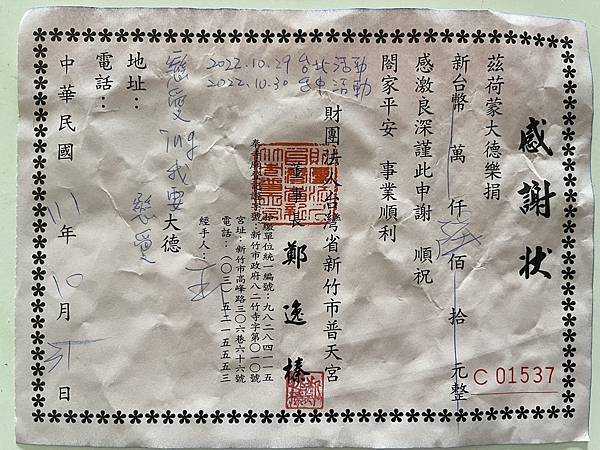 感謝狀
茲荷蒙大德樂捐
新台幣 萬 仟 陸 佰 拾 元整
感激良深謹此申謝 順祝
闔家平安 事業順利
財團法人台灣省新竹市普天宮
董事長 鄭逸榛
扣繳單位統一編號：九八二八四一一五
奉書府登記證字號：新竹市政府八二竹寺字第〇一〇號
宮址：新竹市高峰路三〇六巷六十六號
電話：（〇三）五二一五五五三
經手人：
2022.10.29 台北活動
2022.10.30 台中活動
戀愛ing我要戀愛 大德
地址：
電話：
中華民國 111 年 10 月 31 日
C 01537